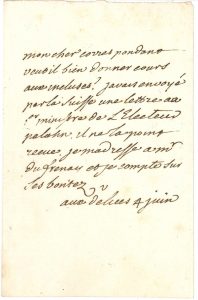 mon cher correspondant
veut il bien donner cours
aux incluses? javais envoyé
par la suisse une lettre au
er ministre de L'Electeur
palatin, il ne la point
recue, je madresse a mr
du frenay et je compte sur
ses bontez V
aux delices 4 juin